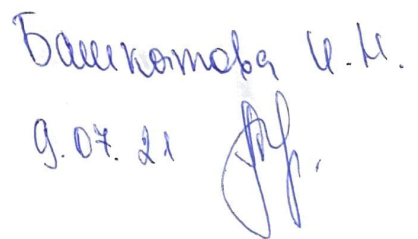 Башкатова И.М.
9.07.21